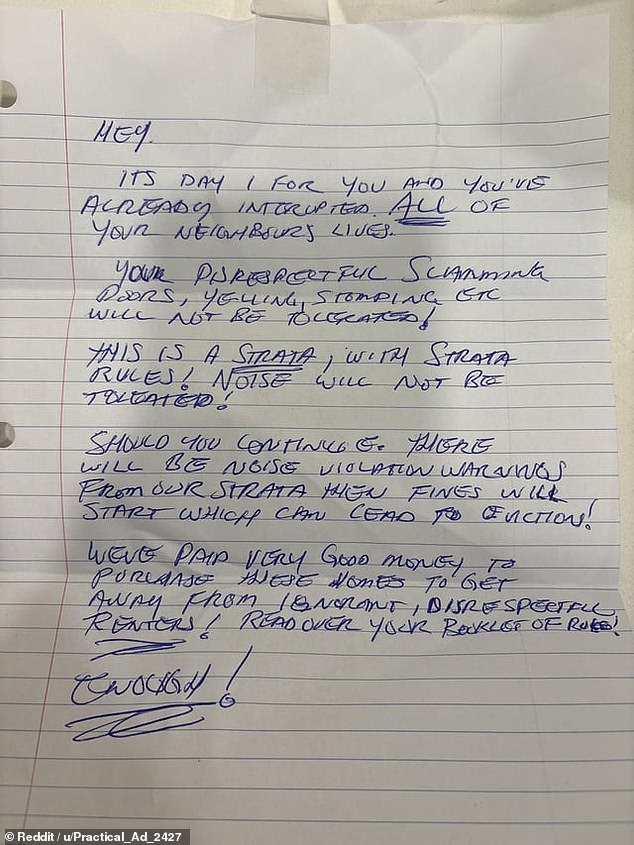 HEY.
ITS DAY 1 FOR YOU AND YOU'VE
ALREADY INTERUPTED. ALL OF
YOUR NEIGHBOURS LIVES.
YOUR DISRESPECTFUL SLAMMING
DOORS, YELLING, STOMPING ETC
WILL NOT BE TOLERATED!
THIS IS A STRATA, WITH STRATA
RULES! NOISE WILL NOT BE
TOLEATED!
SHOULD YOU CONTINUE. THERE
WILL BE NOISE VIOLATION WARNINGS
FROM OUR STRATA THEN FINES WILL
START WHICH CAN LEAD TO EVICTION!
WEVE PAID VERY GOOD MONEY TO
PURCHASE THESE HOMES TO GET
AWAY FROM IGNORANT, DISRESPECTFUL
RENTERS! READ OVER YOUR BOOKLET OF RULES!
ENOUGH!
© Reddit / u/Practical_Ad_2427